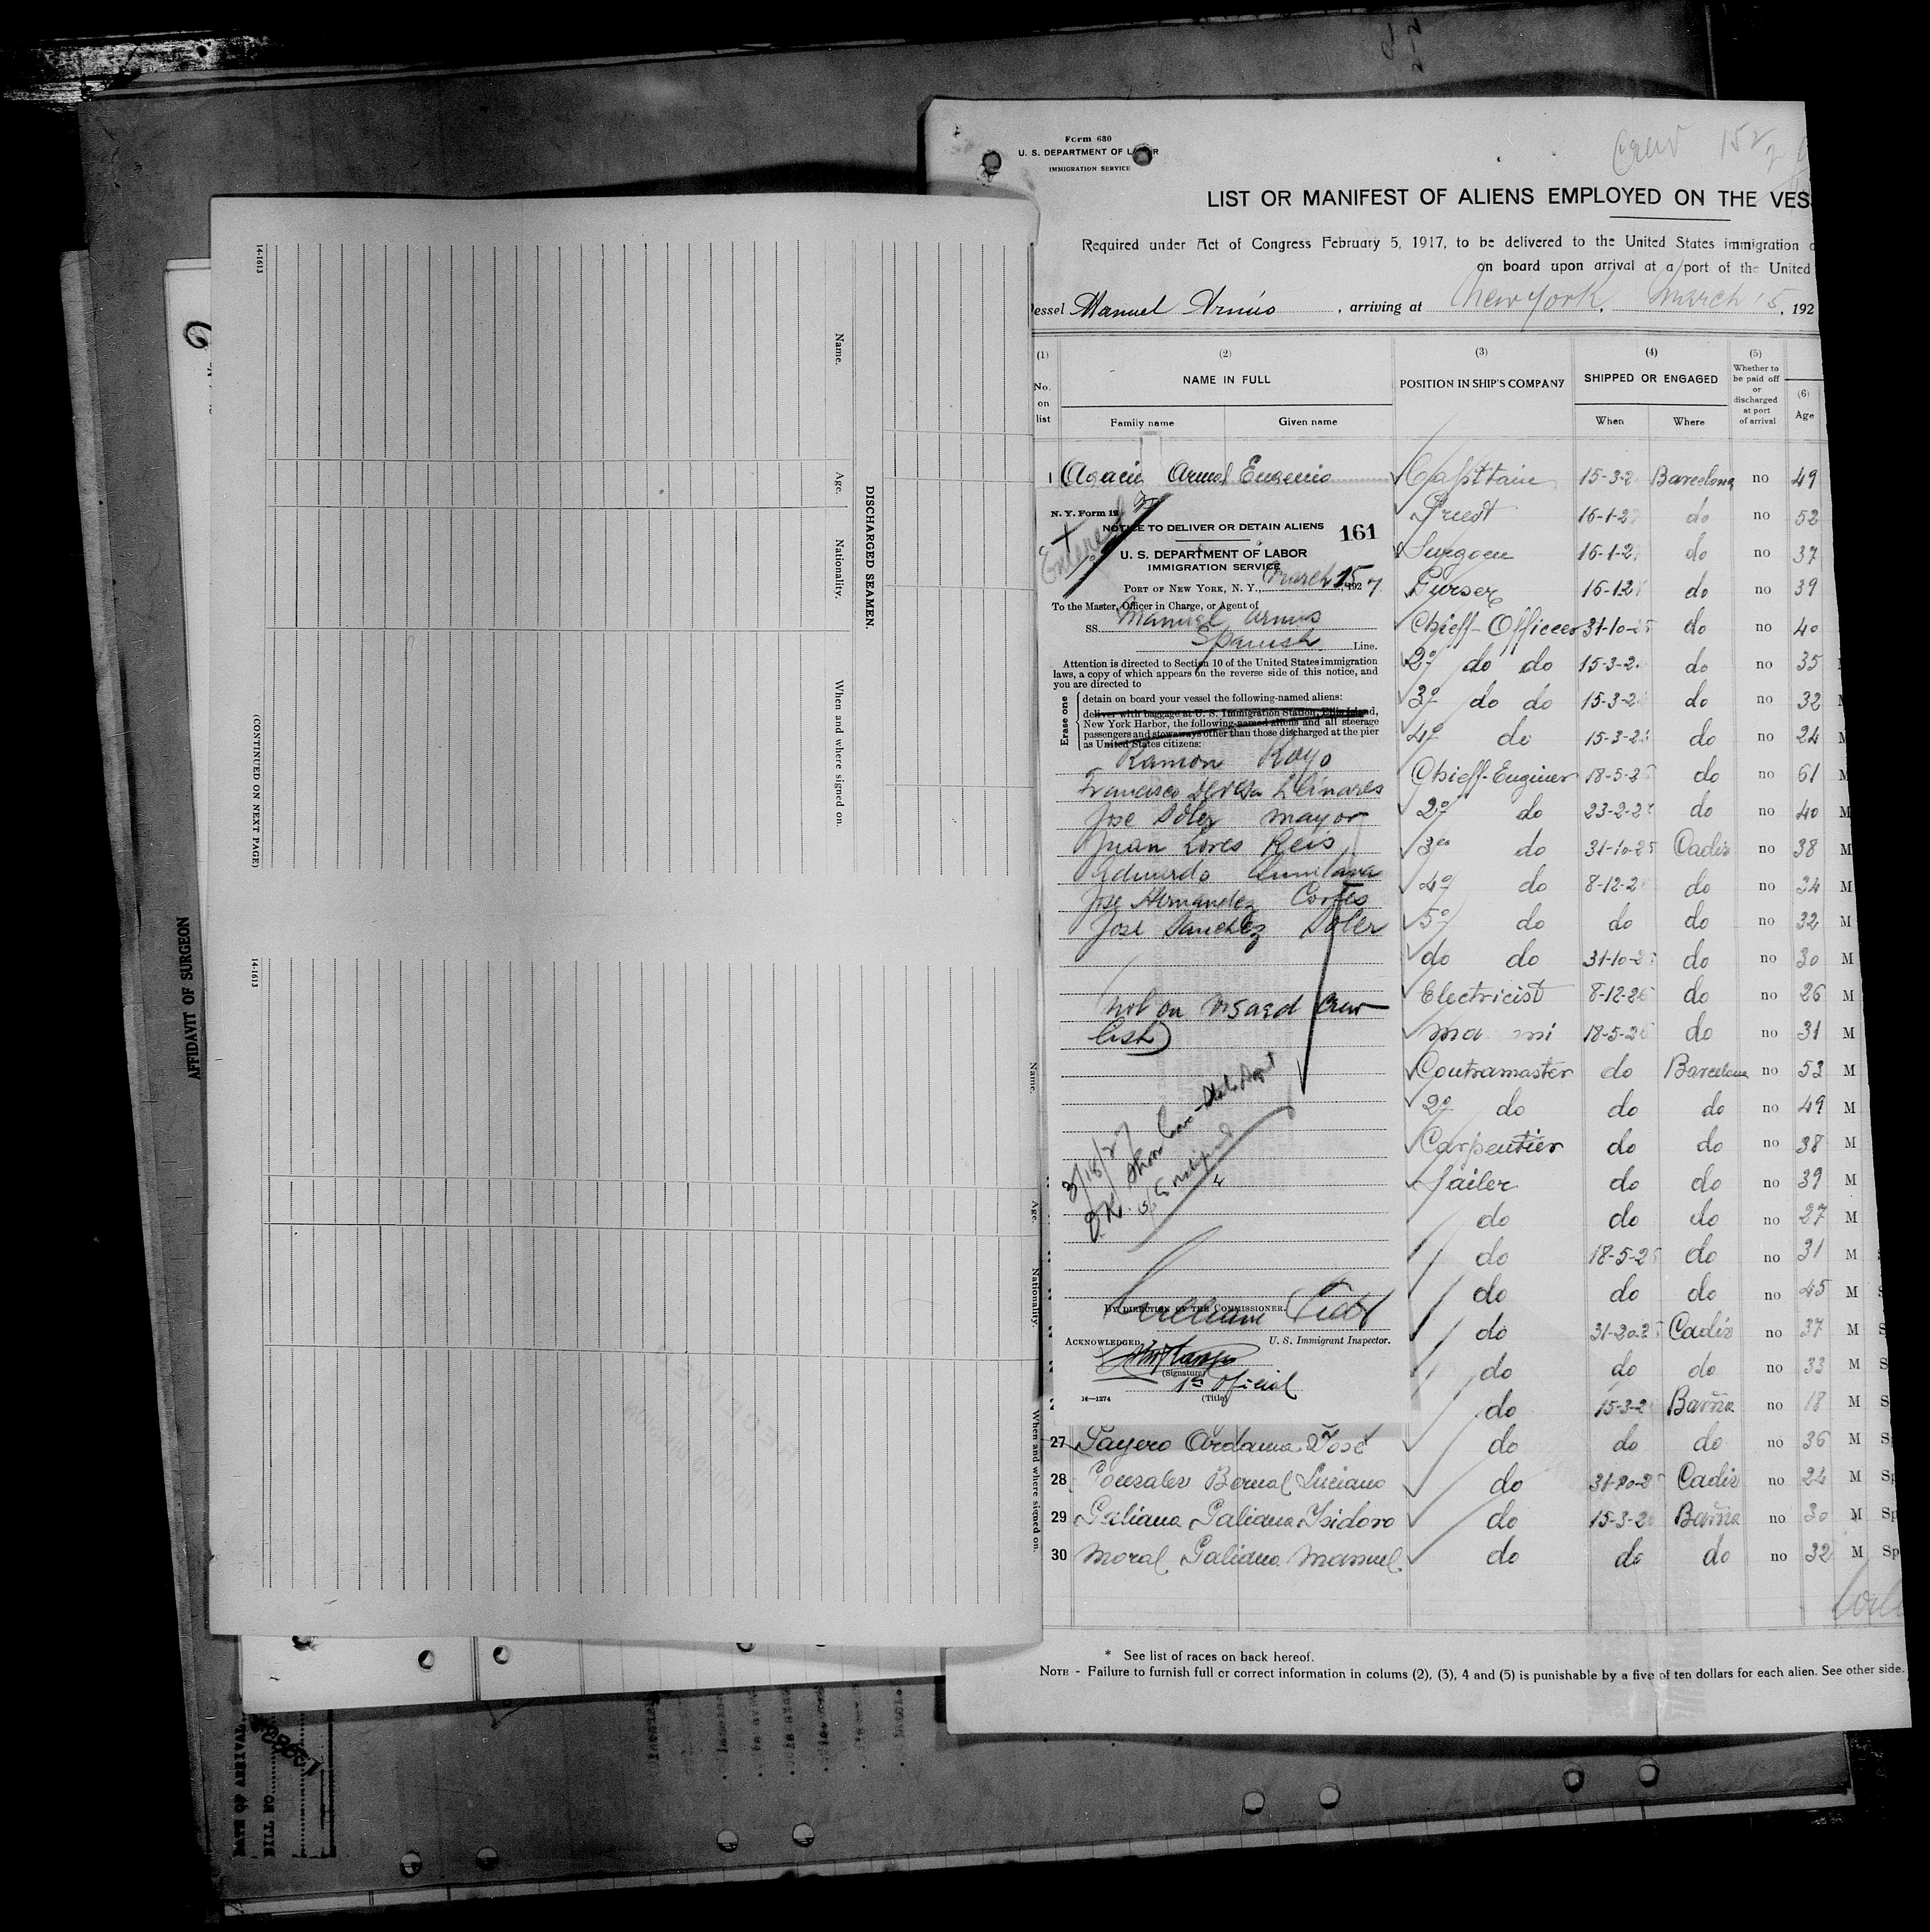 Form 630
U. S. DEPARTMENT OF LABOR
IMMIGRATION SERVICE
Crew 152
LIST OR MANIFEST OF ALIENS EMPLOYED ON THE VES
Required under Act of Congress February 5, 1917, to be delivered to the United States immigration
on board upon arrival at a port of the United
essel Manuel Arnús , arriving at New York, March 15, 192
(1) (2) (3) (4) (5)
No. on list NAME IN FULL POSITION IN SHIP'S COMPANY SHIPPED OR ENGAGED Whether to be paid off or discharged at port of arrival (6) Age
Family name Given name When Where
1 Agacin Arnal Eugenio Capttain 15-3-2 Barcelona no 49
Priest 16-1-2 do no 52
Surgoen 16-1-2 do no 37
Purser 16-12 do no 39
Chieff-Officer 31-10-25 do no 40
2º do do 15-3-2 do no 35
3º do do 15-3-2 do no 32
4º do 15-3-2 do no 24
Chieff-Enginer 18-5-2 do no 61 M
2º do 23-2-2 do no 40 M
3er do 31-10-25 Cadiz no 38 M
4º do 8-12-2 do no 34 M
5º do do do no 32 M
do do 31-10-2 do no 30 M
Electricist 8-12-26 do no 26 M
18-5-26 do no 31 M
Contramaster do Barcelona no 53 M
2º do do do no 49 M
Carpentier do do no 38 M
Jailer do do no 39 M
do do do no 27 M
do 18-5-2 do no 31 M
do do do no 45 M
do 31-20-2 Cadiz no 37 M S
do do do no 33 M S
do 15-3-2 Barña no 18 M S
27 Payero Ardama José do do do no 36 M S
28 Gonzalez Bernal Luciano do 31-20-2 Cadiz no 24 M Sp
29 Galiana Galiana Isidoro do 15-3-2 Barña no 30 M Sp
30 Moral Galiana Manuel do do do no 32 M Sp
* See list of races on back hereof.
NOTE - Failure to furnish full or correct information in colums (2), (3), 4 and (5) is punishable by a five of ten dollars for each alien. See other side.
N. Y. Form 12
Entered
NOTICE TO DELIVER OR DETAIN ALIENS 161
U. S. DEPARTMENT OF LABOR
IMMIGRATION SERVICE
PORT OF NEW YORK, N. Y., March 15, 1927
To the Master, Officer in Charge, or Agent of
SS. Manuel Arnus
Spanish Line.
Attention is directed to Section 10 of the United States immigration
laws, a copy of which appears on the reverse side of this notice, and
you are directed to
Erase one
detain on board your vessel the following-named aliens:
deliver with baggage at U. S. Immigration Station, Ellis Island,
New York Harbor, the following-named aliens and all steerage
passengers and stowaways other than those discharged at the pier
as United States citizens:
Ramon Royo
Francisco Devesa Llinares
Jose Soler Mayor
Juan Lores Reis
Eduardo Quintana
Jose Hernandez Cortes
Jose Sanchez Soler
Not on visaed crew
list)
3/18/27
O.K. Shore Leave
BY DIRECTION OF THE COMMISSIONER.
William
U. S. Immigrant Inspector.
ACKNOWLEDGED
(Signature)
1er Oficial
(Title)
14—1274
14-1613
Name.
Age.
Nationality.
When and where signed on.
DISCHARGED SEAMEN.
(CONTINUED ON NEXT PAGE)
14-1613
Name.
Age.
Nationality.
When and where signed on.
AFFIDAVIT OF SURGEON
DATE OF ARRIVAL
BILL NO.